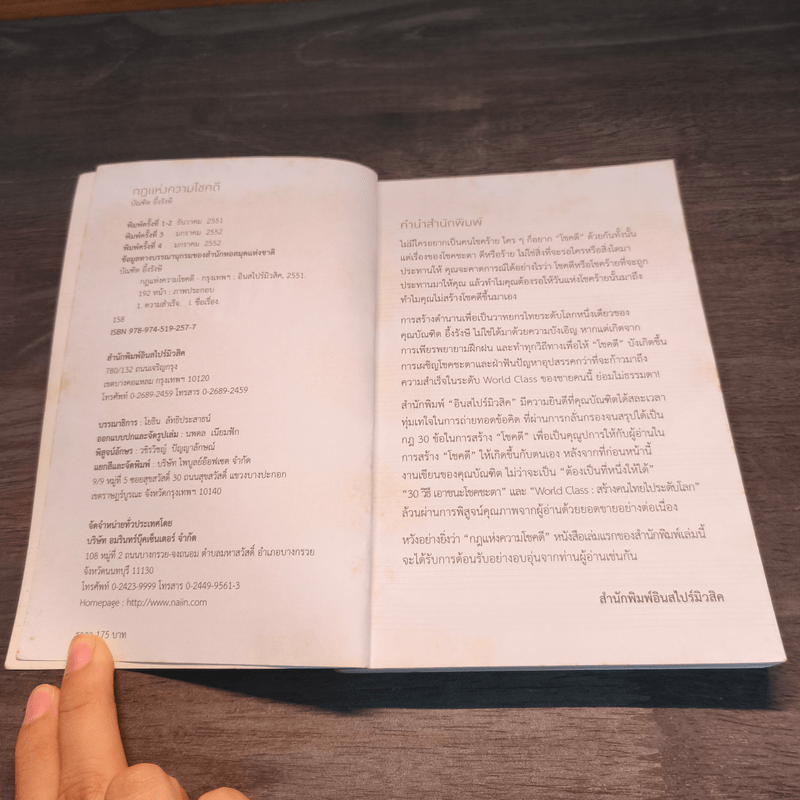 กฎแห่งความโชคดี
บัณฑิต อึ้งรังษี
พิมพ์ครั้งที่ 1-2 ธันวาคม 2551
พิมพ์ครั้งที่ 3 มกราคม 2552
พิมพ์ครั้งที่ 4 มกราคม 2552
ข้อมูลทางบรรณานุกรมของสำนักหอสมุดแห่งชาติ
บัณฑิต อึ้งรังษี
กฎแห่งความโชคดี - กรุงเทพฯ : อินสไปร์มิวสิค, 2551.
192 หน้า : ภาพประกอบ
1. ความสำเร็จ. I. ชื่อเรื่อง.
158
ISBN 978-974-519-257-7
สำนักพิมพ์อินสไปร์มิวสิค
780/132 ถนนเจริญกรุง
เขตบางคอแหลม กรุงเทพฯ 10120
โทรศัพท์ 0-2689-2459 โทรสาร 0-2689-2459
บรรณาธิการ : โยธิน ลัทธิประสาธน์
ออกแบบปกและจัดรูปเล่ม : นพดล เนียมฟัก
พิสูจน์อักษร : วชิรวิชญ์ ปัญญาลักษณ์
แยกสีและจัดพิมพ์ : บริษัท ไพบูลย์อ๊อฟเซต จำกัด
9/9 หมู่ที่ 5 ซอยสุขสวัสดิ์ 30 ถนนสุขสวัสดิ์ แขวงบางปะกอก
เขตราษฎร์บูรณะ จังหวัดกรุงเทพฯ 10140
จัดจำหน่ายทั่วประเทศโดย
บริษัท อมรินทร์บุ๊คเซ็นเตอร์ จำกัด
108 หมู่ที่ 2 ถนนบางกรวย-จงถนอม ตำบลมหาสวัสดิ์ อำเภอบางกรวย
จังหวัดนนทบุรี 11130
โทรศัพท์ 0-2423-9999 โทรสาร 0-2449-9561-3
Homepage : http://www.naiin.com
175 บาท
คำนำสำนักพิมพ์
ไม่มีใครอยากเป็นคนโชคร้าย ใคร ๆ ก็อยาก “โชคดี” ด้วยกันทั้งนั้น
แต่เรื่องของโชคชะตา ดีหรือร้าย ไม่ใช่สิ่งที่จะรอใครหรือสิ่งใดมา
ประทานให้ คุณจะคาดการณ์ได้อย่างไรว่า โชคดีหรือโชคร้ายที่จะถูก
ประทานมาให้คุณ แล้วทำไมคุณต้องรอให้วันแห่งโชคร้ายนั้นมาถึง
ทำไมคุณไม่สร้างโชคดีขึ้นมาเอง
การสร้างตำนานเพื่อเป็นวาทยกรไทยระดับโลกหนึ่งเดียวของ
คุณบัณฑิต อึ้งรังษี ไม่ใช่ได้มาด้วยความบังเอิญ หากแต่เกิดจาก
การเพียรพยายามฝึกฝน และทำทุกวิถีทางเพื่อให้ “โชคดี” บังเกิดขึ้น
การเผชิญโชคชะตาและฝ่าฟันปัญหาอุปสรรคกว่าที่จะก้าวมาถึง
ความสำเร็จในระดับ World Class ของชายคนนี้ ย่อมไม่ธรรมดา!
สำนักพิมพ์ “อินสไปร์มิวสิค” มีความยินดีที่คุณบัณฑิตได้สละเวลา
ทุ่มเทใจในการถ่ายทอดข้อคิด ที่ผ่านการกลั่นกรองจนสรุปได้เป็น
กฎ 30 ข้อในการสร้าง “โชคดี” เพื่อเป็นคุณูปการให้กับผู้อ่านใน
การสร้าง “โชคดี” ให้เกิดขึ้นกับตนเอง หลังจากที่ก่อนหน้านี้
งานเขียนของคุณบัณฑิต ไม่ว่าจะเป็น “ต้องเป็นที่หนึ่งให้ได้”
“30 วิธี เอาชนะโชคชะตา” และ “World Class : สร้างคนไทยไประดับโลก”
ล้วนผ่านการพิสูจน์คุณภาพจากผู้อ่านด้วยยอดขายอย่างต่อเนื่อง
หวังอย่างยิ่งว่า “กฎแห่งความโชคดี” หนังสือเล่มแรกของสำนักพิมพ์เล่มนี้
จะได้รับการต้อนรับอย่างอบอุ่นจากท่านผู้อ่านเช่นกัน
สำนักพิมพ์อินสไปร์มิวสิค